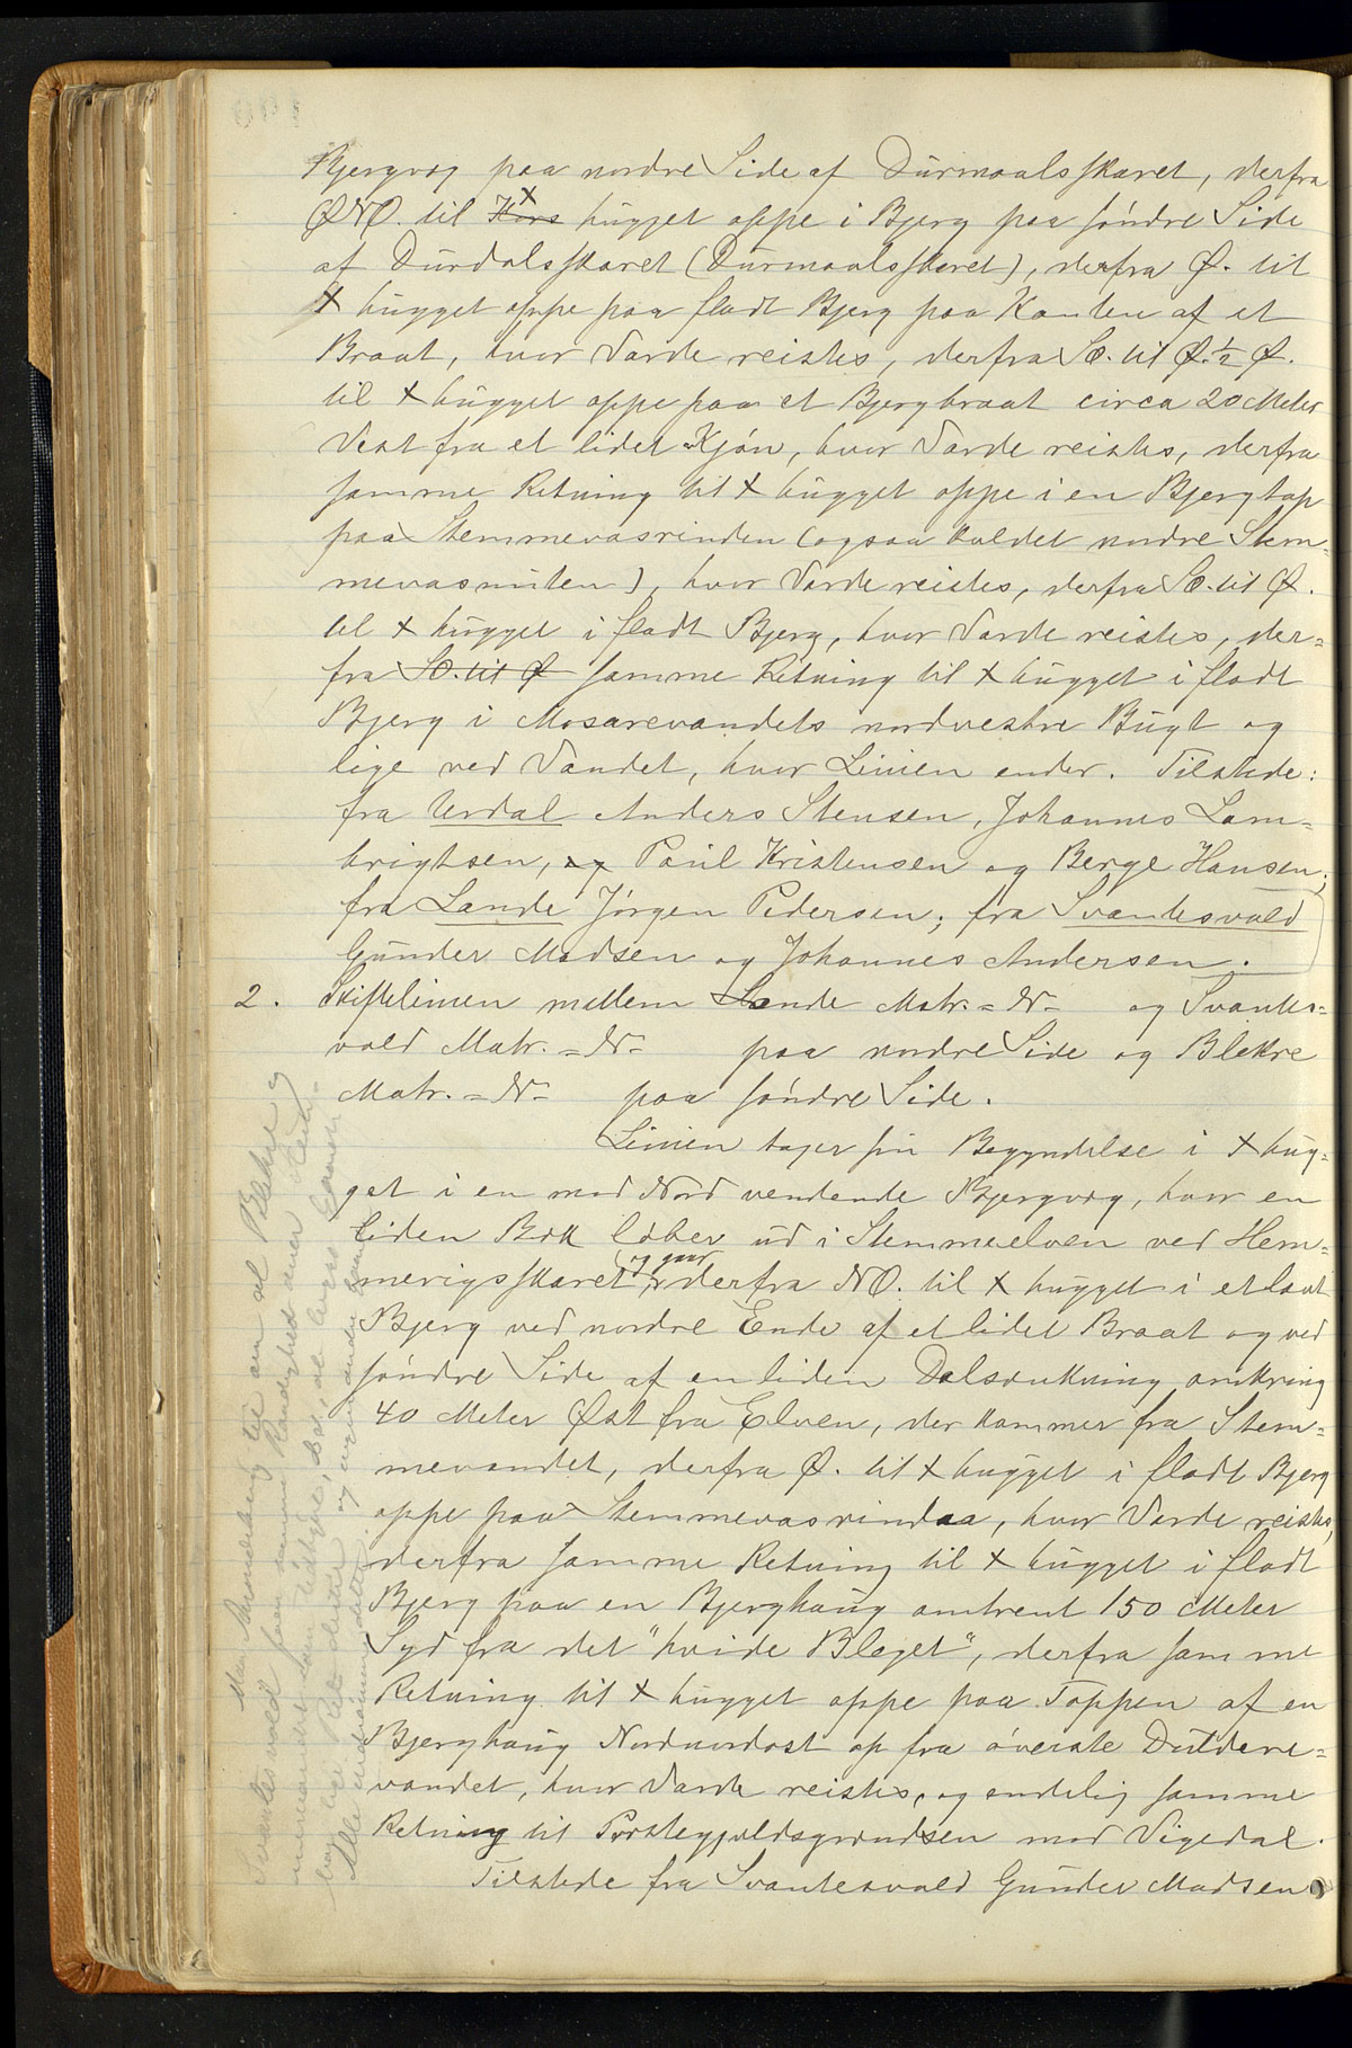 Bjergvæg paa nordre Side af Durmaalsskaret, derfra
ØNO. til Kors x hugget oppe i Bjerg paa søndre Side
af Durdalsskaret (Durmaalsskaret), derfra Ø. til
x hugget oppe paa fladt Bjerg paa Kanten af et
Braat, hvor Varde reistes, derfra SO. til Ø. ½ Ø.
til x hugget oppe paa et Bjergbraat circa 20 Meter
Vest fra et lidet Kjøn, hvor Varde reistes, derfra
samme Retning til x hugget oppe i en Bjergtop
paa Stemmevasrinden (ogsaa kaldet nordre Stem=
mevasnuten), hvor Varde reistes, derfra SO. til Ø.
til x hugget i fladt Bjerg, hvor Varde reistes, der=
fra SO. til Ø samme Retning til x hugget i fladt
Bjerg i Mosarevandets nordvestre Bugt og
lige ved Vandet, hvor Linien ender. Tilstede:
fra Urdal Anders Stensen, Johannes Lam=
brigtsen, og Paul Kristensen og Berge Hansen;
fra Lande Jørgen Pedersen; fra Svantesvold
Gunder Madsen og Johannes Andersen.
2. Skiftelinien mellem Lande Matr.=N= og Svantes=
vold Matr.=N= paa nordre Side og Blekre
Matr.=N= paa søndre Side.
Linien tager sin Begyndelse i x hug=
get i en mod Nord vendende Bjergvæg, hvor en
liden Bæk løber ud i Stemmeelven ved Hem=
merigsskaret, og gaar derfra NO. til x hugget i et lavt
Bjerg ved nordre Ende af et lidet Braat og ved
søndre Side af en liden Dalsænkning omkring
40 Meter Øst fra Elven, der kommer fra Stem=
mevandet, derfra Ø. til x hugget i fladt Bjerg
oppe paa Stemmevasrindaa, hvor Varde reistes,
derfra samme Retning til x hugget i fladt
Bjerg paa en Bjerghaug omtrent 150 Meter
Syd fra det "hvide Bleget", derfra samme
Retning til x hugget oppe paa Toppen af en
Bjerghaug Nordnordost op fra øverste Duldere=
vandet, hvor Varde reistes, og endelig samme
Retning til Præstegjeldsgrændsen mod Vigedal.
Tilstede fra Svantesvold Gunder Madsen